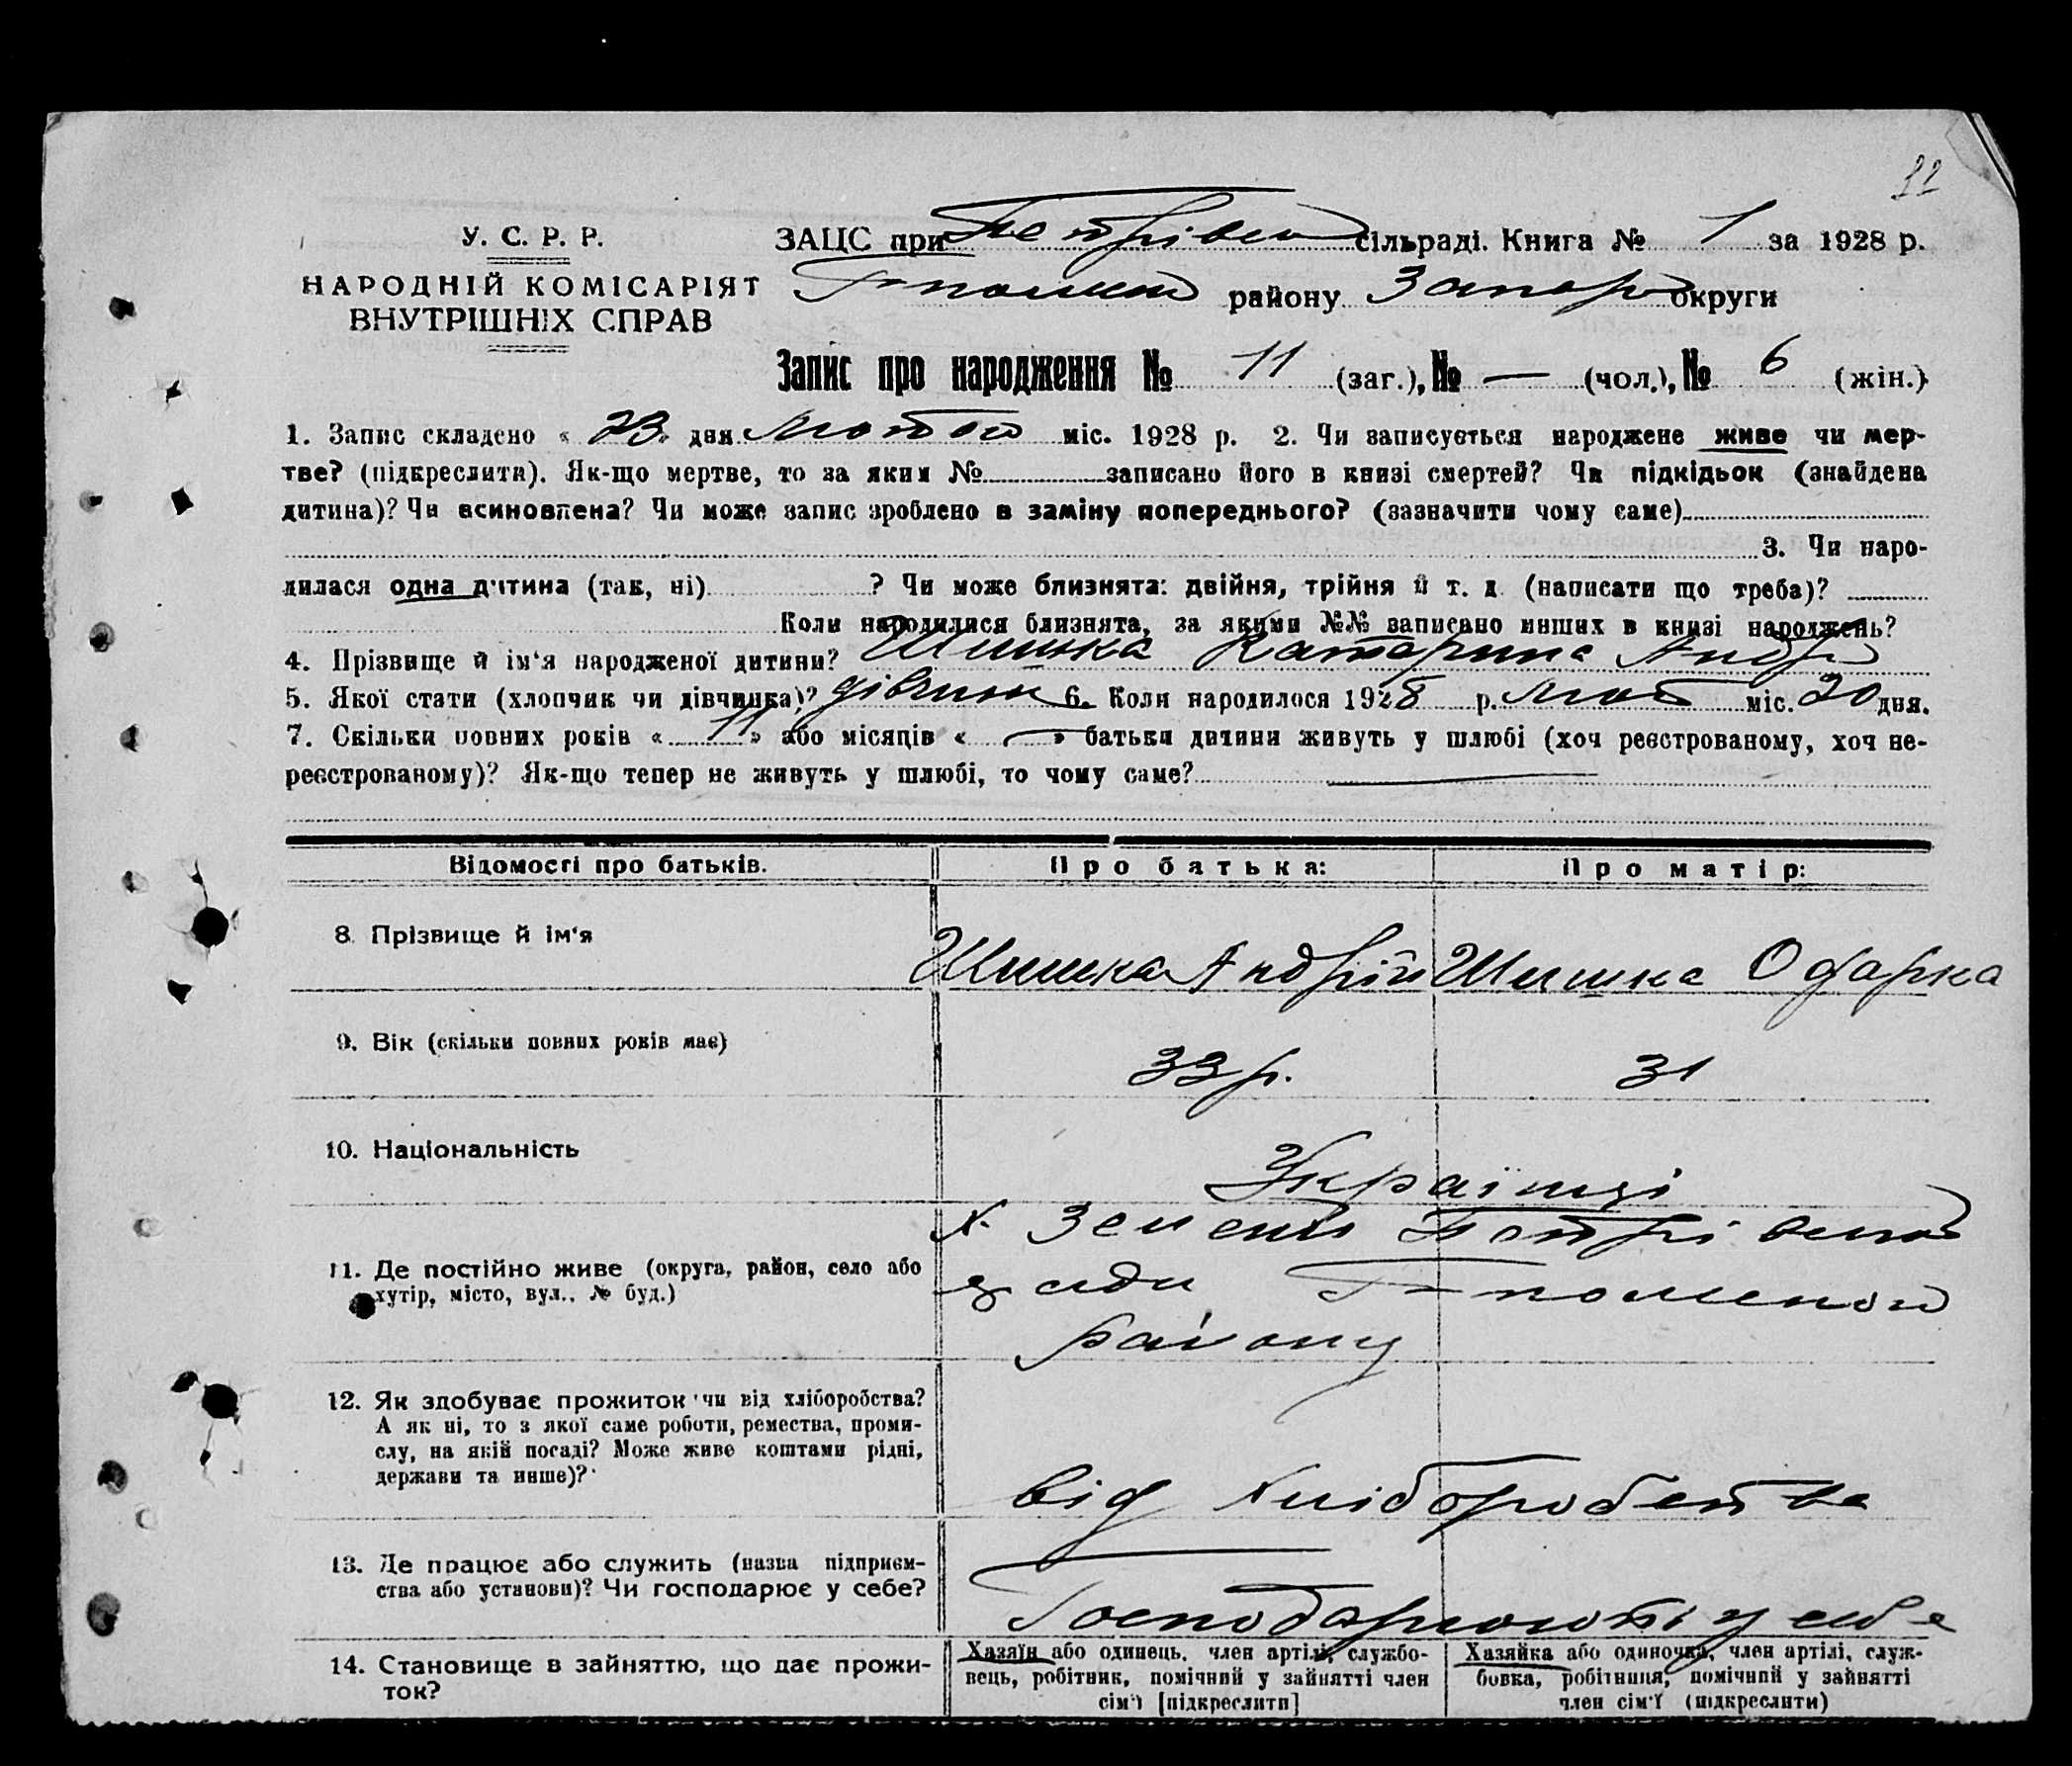 22
У. С. Р. Р.
НАРОДНІЙ КОМІСАРІЯТ
ВНУТРІШНІХ СПРАВ
ЗАЦС при Петрівск сільраді. Книга № 1 за 1928 р.
району Запор округи
Запис про народження № 11 (заг.), № — (чол.), № 6 (жін.)
1. Запис складено « 23 » дня Лютого міс. 1928 р. 2. Чи записується народжене живе чи мер-
тве? (підкреслити). Як-що мертве, то за яким № записано його в книзі смертей? Чи підкідьок (знайдена
дитина)? Чи всиновлена? Чи може запис зроблено в заміну попереднього? (зазначити чому саме)
3. Чи наро-
дилася одна дитина (так, ні) ? Чи може близнята: двійня, трійня й т. д. (написати що треба)?
Коли народилися близнята, за якими №№ записано инших в книзі народжень?
4. Прізвище й ім‘я народженої дитини? Шишка Катерина Андр
5. Якої стати (хлопчик чи дівчинка)? дівчинк 6. Коли народилося 1928 р. Лют міс. 20 дня.
7. Скільки повних років « 11 » або місяців « — » батьки дитини живуть у шлюбі (хоч реєстрованому, хоч не-
реєстрованому)? Як-що тепер не живуть у шлюбі, то чому саме?
Відомості про батьків. Про батька: Про матір:
8. Прізвище й ім‘я Шишка Андрій Шишка Одарка
9. Вік (скільки повних років має) 33 р. 31
10. Національність Українці
11. Де постійно живе (округа, район, село або
хутір, місто, вул., № буд.)
х.
району
12. Як здобуває прожиток чи від хліборобства?
А як ні, то з якої саме роботи, ремества, проми-
слу, на якій посаді? Може живе коштами рідні,
держави та инше)?
від хліборобства
13. Де працює або служить (назва підприєм-
ства або установи)? Чи господарює у себе?
Господарюють у себе
14. Становище в зайняттю, що дає прожи-
ток?
Хазяїн або одинець, член артілі, службо-
вець, робітник, помічний у зайнятті член
сім‘ї [підкреслити]
Хазяйка або одиночка, член артілі, служ-
бовка, робітниця, помічний у зайнятті
член сім‘ї (підкреслити)